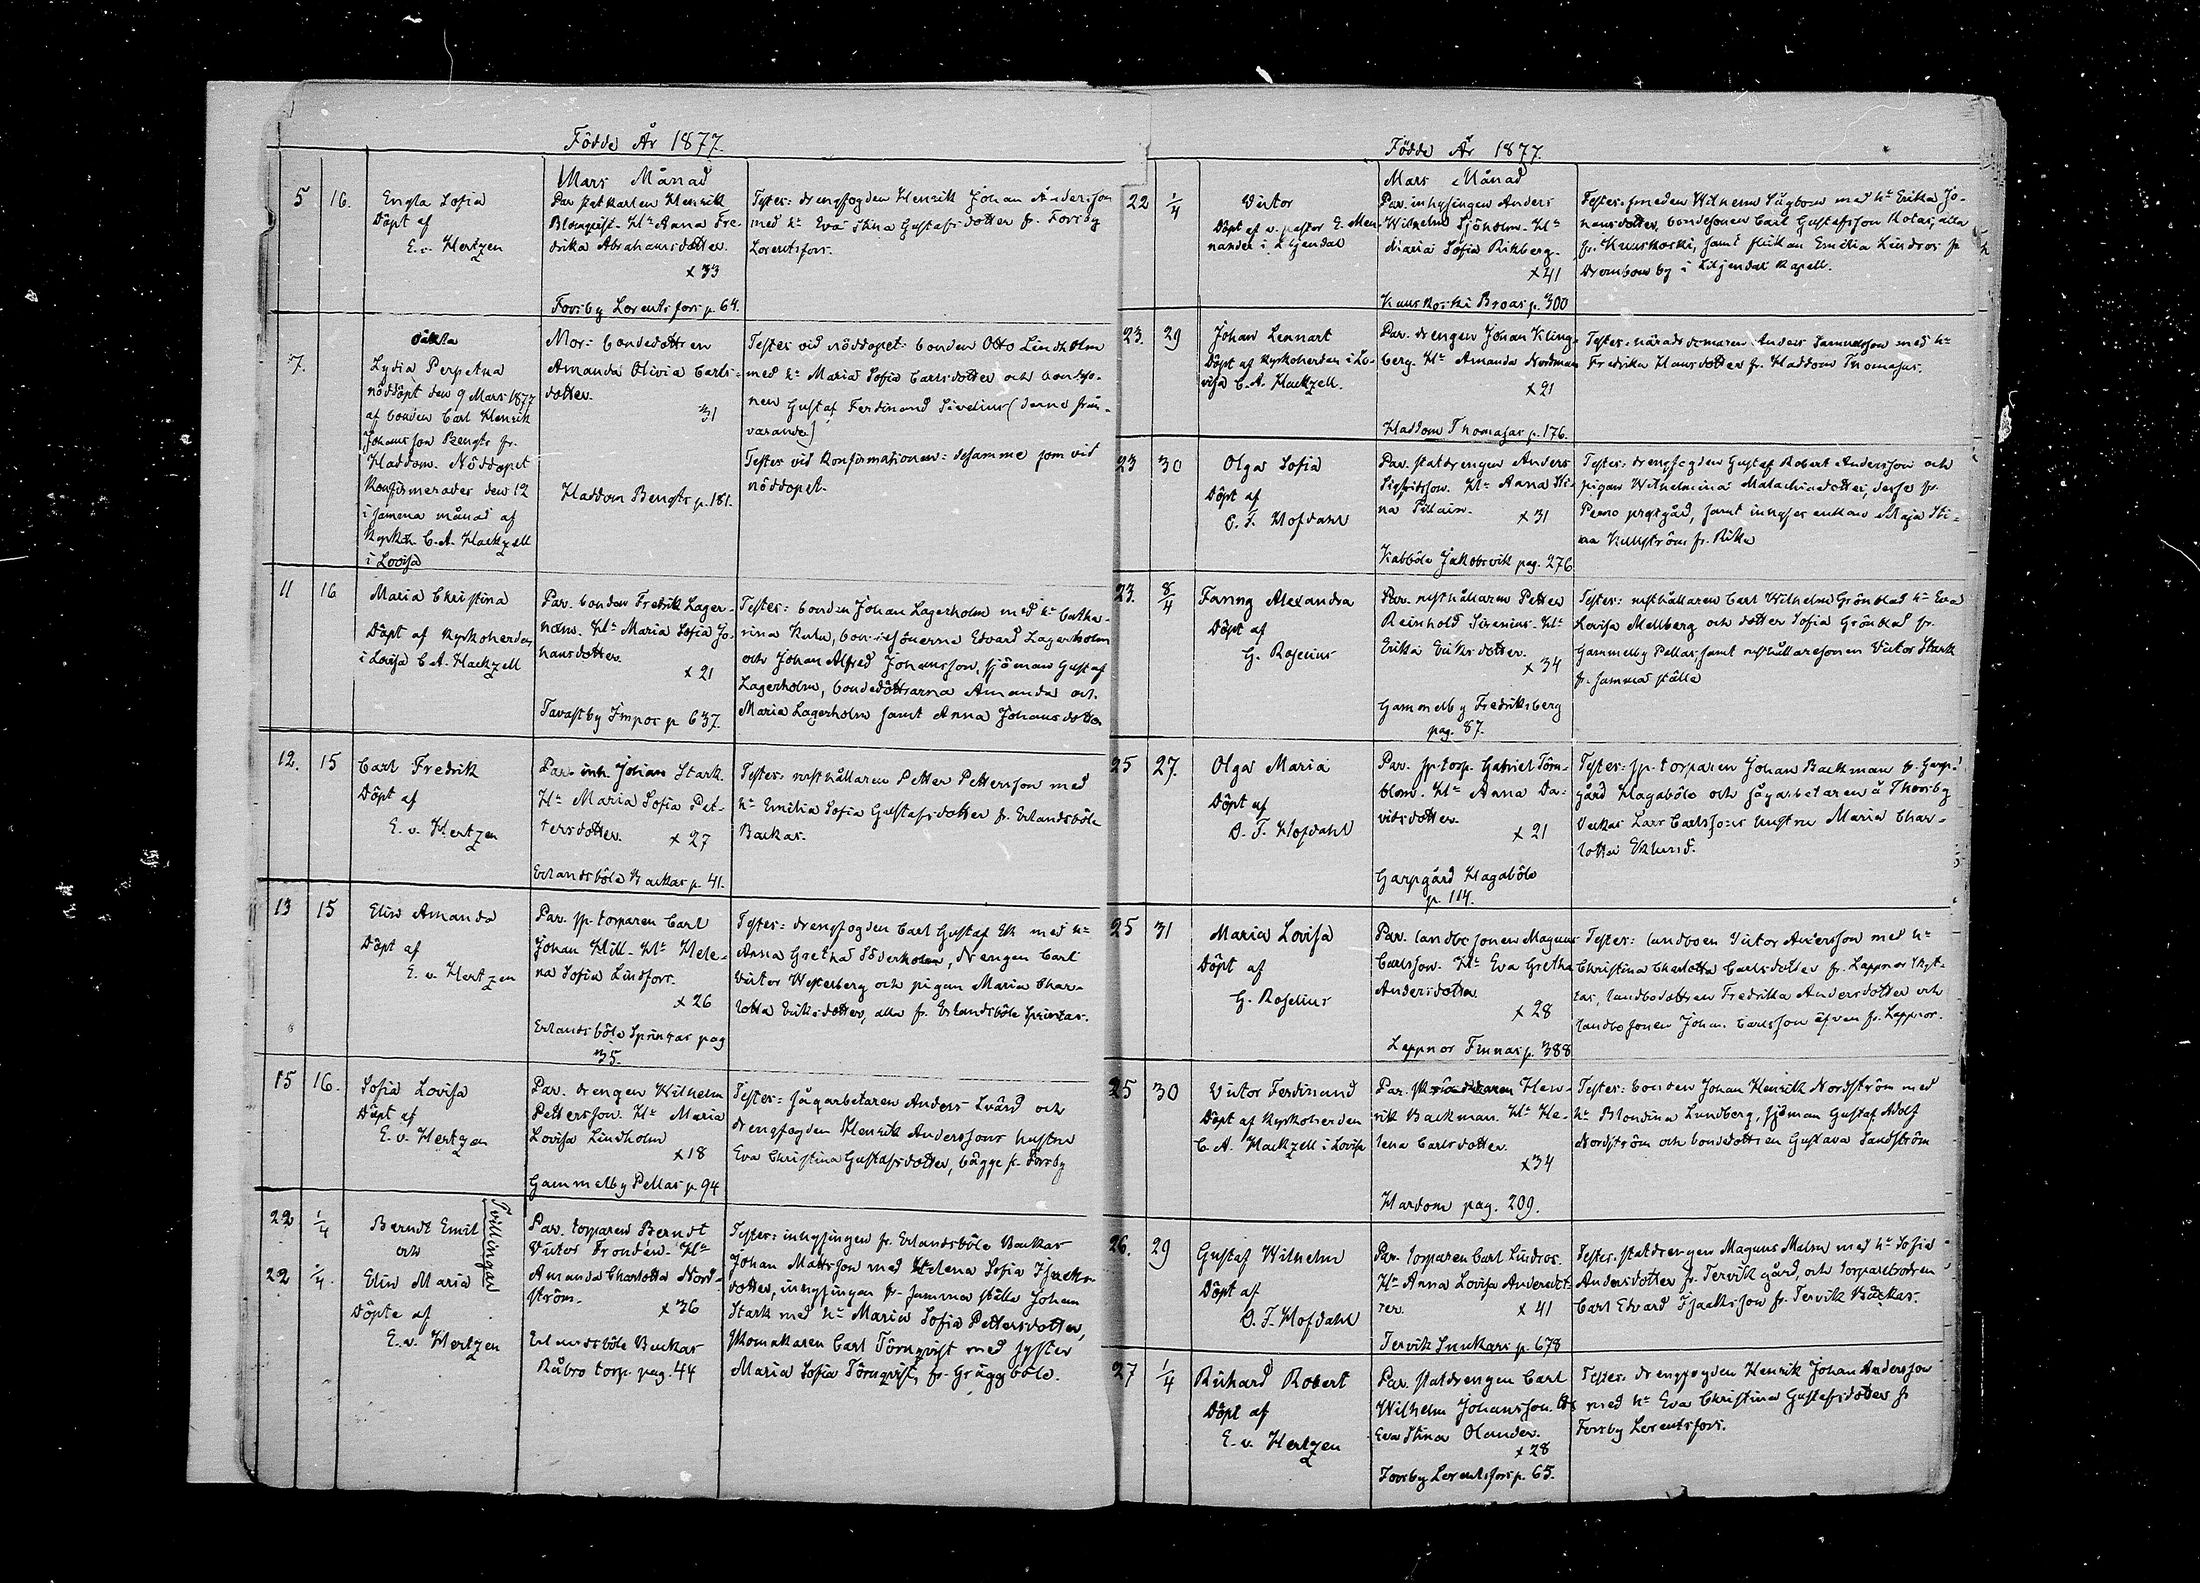 Födde År 1877.
Mars Månad
5 16.
Engla Sofia
Döpt af
E. v. Hertzen
Par statkarlen Henrik
Blomqvist. H:u Anna Fre-
drika Abrahamsdotter.
x 33
Forsby Lorentsfors p. 64.
Testes: drengfogden Henrik Johan Andersson
med h:u Eva Stina Gustafsdotter fr. Forsby
Lorentsfors.
7.
oäkta
Lydia Perpetua
nöddöpt den 9 Mars 1877
af bonden Carl Henrik
Johansson Bengts fr.
Haddom. Nöddopet
konfirmerades den 12
i samma månad af
Kyrkoh. C. A. Hackzell
i Lovisa
Mor: bondedottren
Amanda Olivia Carls-
dotter.
31
Haddom Bengts p. 181.
Testes vid nöddopet: bonden Otto Lindholm
med h:u Maria Sofia Carlsdotter och bondso-
nen Gustaf Ferdinand Sirelius (denne från-
varande)
Testes vid konfirmationen: desamme som vid
nöddopet.
11 16
Maria Christina
Döpt af Kyrkoherden
i Lovisa C. A. Hackzell
Par. bonden Fredrik Lager-
holm. H:u Maria Sofia Jo-
hansdotter.
x 21
Tavastby Impos p 637.
Testes: bonden Johan Lagerholm med h:u Catha-
rina, bondesönerna Edvard Lagerholm
och Johan Alfred Johansson, sjöman Gustaf
Lagerholm, bondedöttrarna Amanda och
Maria Lagerholm samt Anna Johansdotter
12. 15
Carl Fredrik
Döpt af
E. v. Hertzen
Par. inh. Johan Stark.
H:u Maria Sofia Pet-
tersdotter.
x 27
Erlandsböle Backas p. 41.
Testes: rusthållaren Petter Pettersson med
h:u Emilia Sofia Gustafsdotter fr. Erlandsböle
Backas.
13 15
Elin Amanda
Döpt af
E. v. Hertzen
Par. sp. torparen Carl
Johan Hill. H:u Hele-
na Sofia Lindfors.
x 26
Erlandsböle Springas pag
35.
Testes: drengfogden Carl Gustaf Ek med h:u
Anna Gretha Söderholm, drengen Carl
Victor Westerberg och pigan Maria Char-
lotta Eriksdotter, alla fr. Erlandsböle Springas.
15 16.
Sofia Lovisa
Döpt af
E. v. Hertzen
Par. drengen Wilhelm
Pettersson. H:u Maria
Lovisa Lindholm
x 18
Gammelby Pellas p 94
Testes: sågarbetaren Anders Svärd och
drengfogden Henrik Anderssons hustru
Eva Christina Gustafsdotter, bägge fr. Forsby
22 1/4
Berndt Emil
och
22 1/4.
Elin Maria
Tvillingar
Döpte af
E. v. Hertzen
Par. torparen Berndt
Victor Frondén. H:u
Amanda Charlotta Nord-
ström.
x 36
Erlandsböle Backas
Råbro torp. pag. 44
Testes: inhysingen fr. Erlandsböle Backas
Johan Mattsson med Helena Sofia Isacks-
dotter, inhysingen fr. samma ställe Johan
Stark med h:u Maria Sofia Pettersdotter,
skomakaren Carl Törnqvist med syster
Maria Sofia Törnqvist, fr. Gräggböle.
Födde År 1877.
Mars Månad
22 1/4
Victor
Döpt af v. pastor E. Men-
nander i Liljendal
Par. inhysingen Anders
Wilhelm Sjöholm. H:u
Maria Sofia Rikberg.
x 41
Kuuskoski Broas p. 300
Testes: smeden Wilhelm med h:u Erika Jo-
hansdotter, bondesonen Carl Gustafsson Kotas, alla
fr. Kuuskoski, samt flickan Emilia Lindros fr
Drombom by i Liljendal Kapell.
23. 29
Johan Lennart
Döpt af Kyrkoherden i Lo-
visa C. A. Hackzell.
Par. drengen Johan Kling-
berg. H:u Amanda Nordman
x 21
Haddom Thomasas p. 176.
Testes: häradsdomaren Anders Samuelsson med h:u
Fredrika Hansdotter fr. Haddom Thomasas.
23 30
Olga Sofia
Döpt af
O. F. Hofdahl
Par. statdrengen Anders
Sigfridsson. H:u Anna Sti-
na
x 31
Kabböle Jakobsvik pag. 276
Testes: drengfogden Gustaf Robert Andersson och
pigan Wilhelmina Malachiasdotter, desse fr.
Perno prestgård, samt inhyses enkan Maja Sti-
na Kullström fr. Rike
23. 8/4
Fanny Alexandra
Döpt af
G. Roselius
Par. rusthållaren Petter
Reinhold Sirenius. H:u
Erika Eriksdotter.
x 34
Gammelby Fredriksberg
pag. 87.
Testes: rusthållaren Carl Wilhelm Grönblad h:u Eva
Lovisa Mellberg och dotter Sofia Grönblad fr.
Gammelby Pellas, samt rusthållaresonen Victor Stark
fr. samma ställe
25 27.
Olga Maria
Döpt af
O. F. Hofdahl
Par. sp. torp. Gabriel Törn-
blom. H:u Anna Da-
vidsdotter.
x 21
Garpgård Hagaböle
p. 114.
Testes: sp. torparen Johan Backman fr. Garp-
gård Hagaböle och sågarbetaren å Thorsby
Veckas Lars Carlssons hustru Maria Char-
lotta Eklund.
25 31
Maria Lovisa
Döpt af
G. Roselius
Par. landbosonen Magnus
Carlsson. H:u Eva Gretha
Andersdotter
x 28
Lappnor Finnas p. 388
Testes: landboen Victor Andersson med h:u
Christina Charlotta Carlsdotter fr. Lappnor Skyt-
tas, landbodottren Fredrika Andersdotter och
landbosonen Johan Carlsson äfven fr. Lappnor.
25 30
Victor Ferdinand
Döpt af Kyrkoherden
C. A. Hackzell i Lovisa
Par. Hen-
rik Backman. H:u He-
lena Carlsdotter.
x 34
Hardom pag. 209.
Testes: bonden Johan Henrik Nordström med
h:u Blondina Lundberg, sjöman Gustaf Adolf
Nordström och bondedottren Gustava Sandström
26. 29
Gustaf Wilhelm
Döpt af
O. F. Hofdahl
Par. torparen Carl Lindros.
H:u Anna Lovisa Andersdot-
ter.
x 41
Tervik Snickars p. 678
Testes: statdrengen Magnus Malm med h:u Sofia
Andersdotter fr. Tervik gård, och torparebodren
Carl Edvard Isacksson fr. Tervik Backas.
27 1/4
Richard Robert
Döpt af
E. v. Hertzen
Par. statdrengen Carl
Wilhelm Johansson. H:u
Eva Stina Olander.
x 28
Forsby Lorentsfors p. 65.
Testes: drengfogden Henrik Johan Andersson
med h:u Eva Christina Gustafsdotter fr
Forsby Lorentsfors.